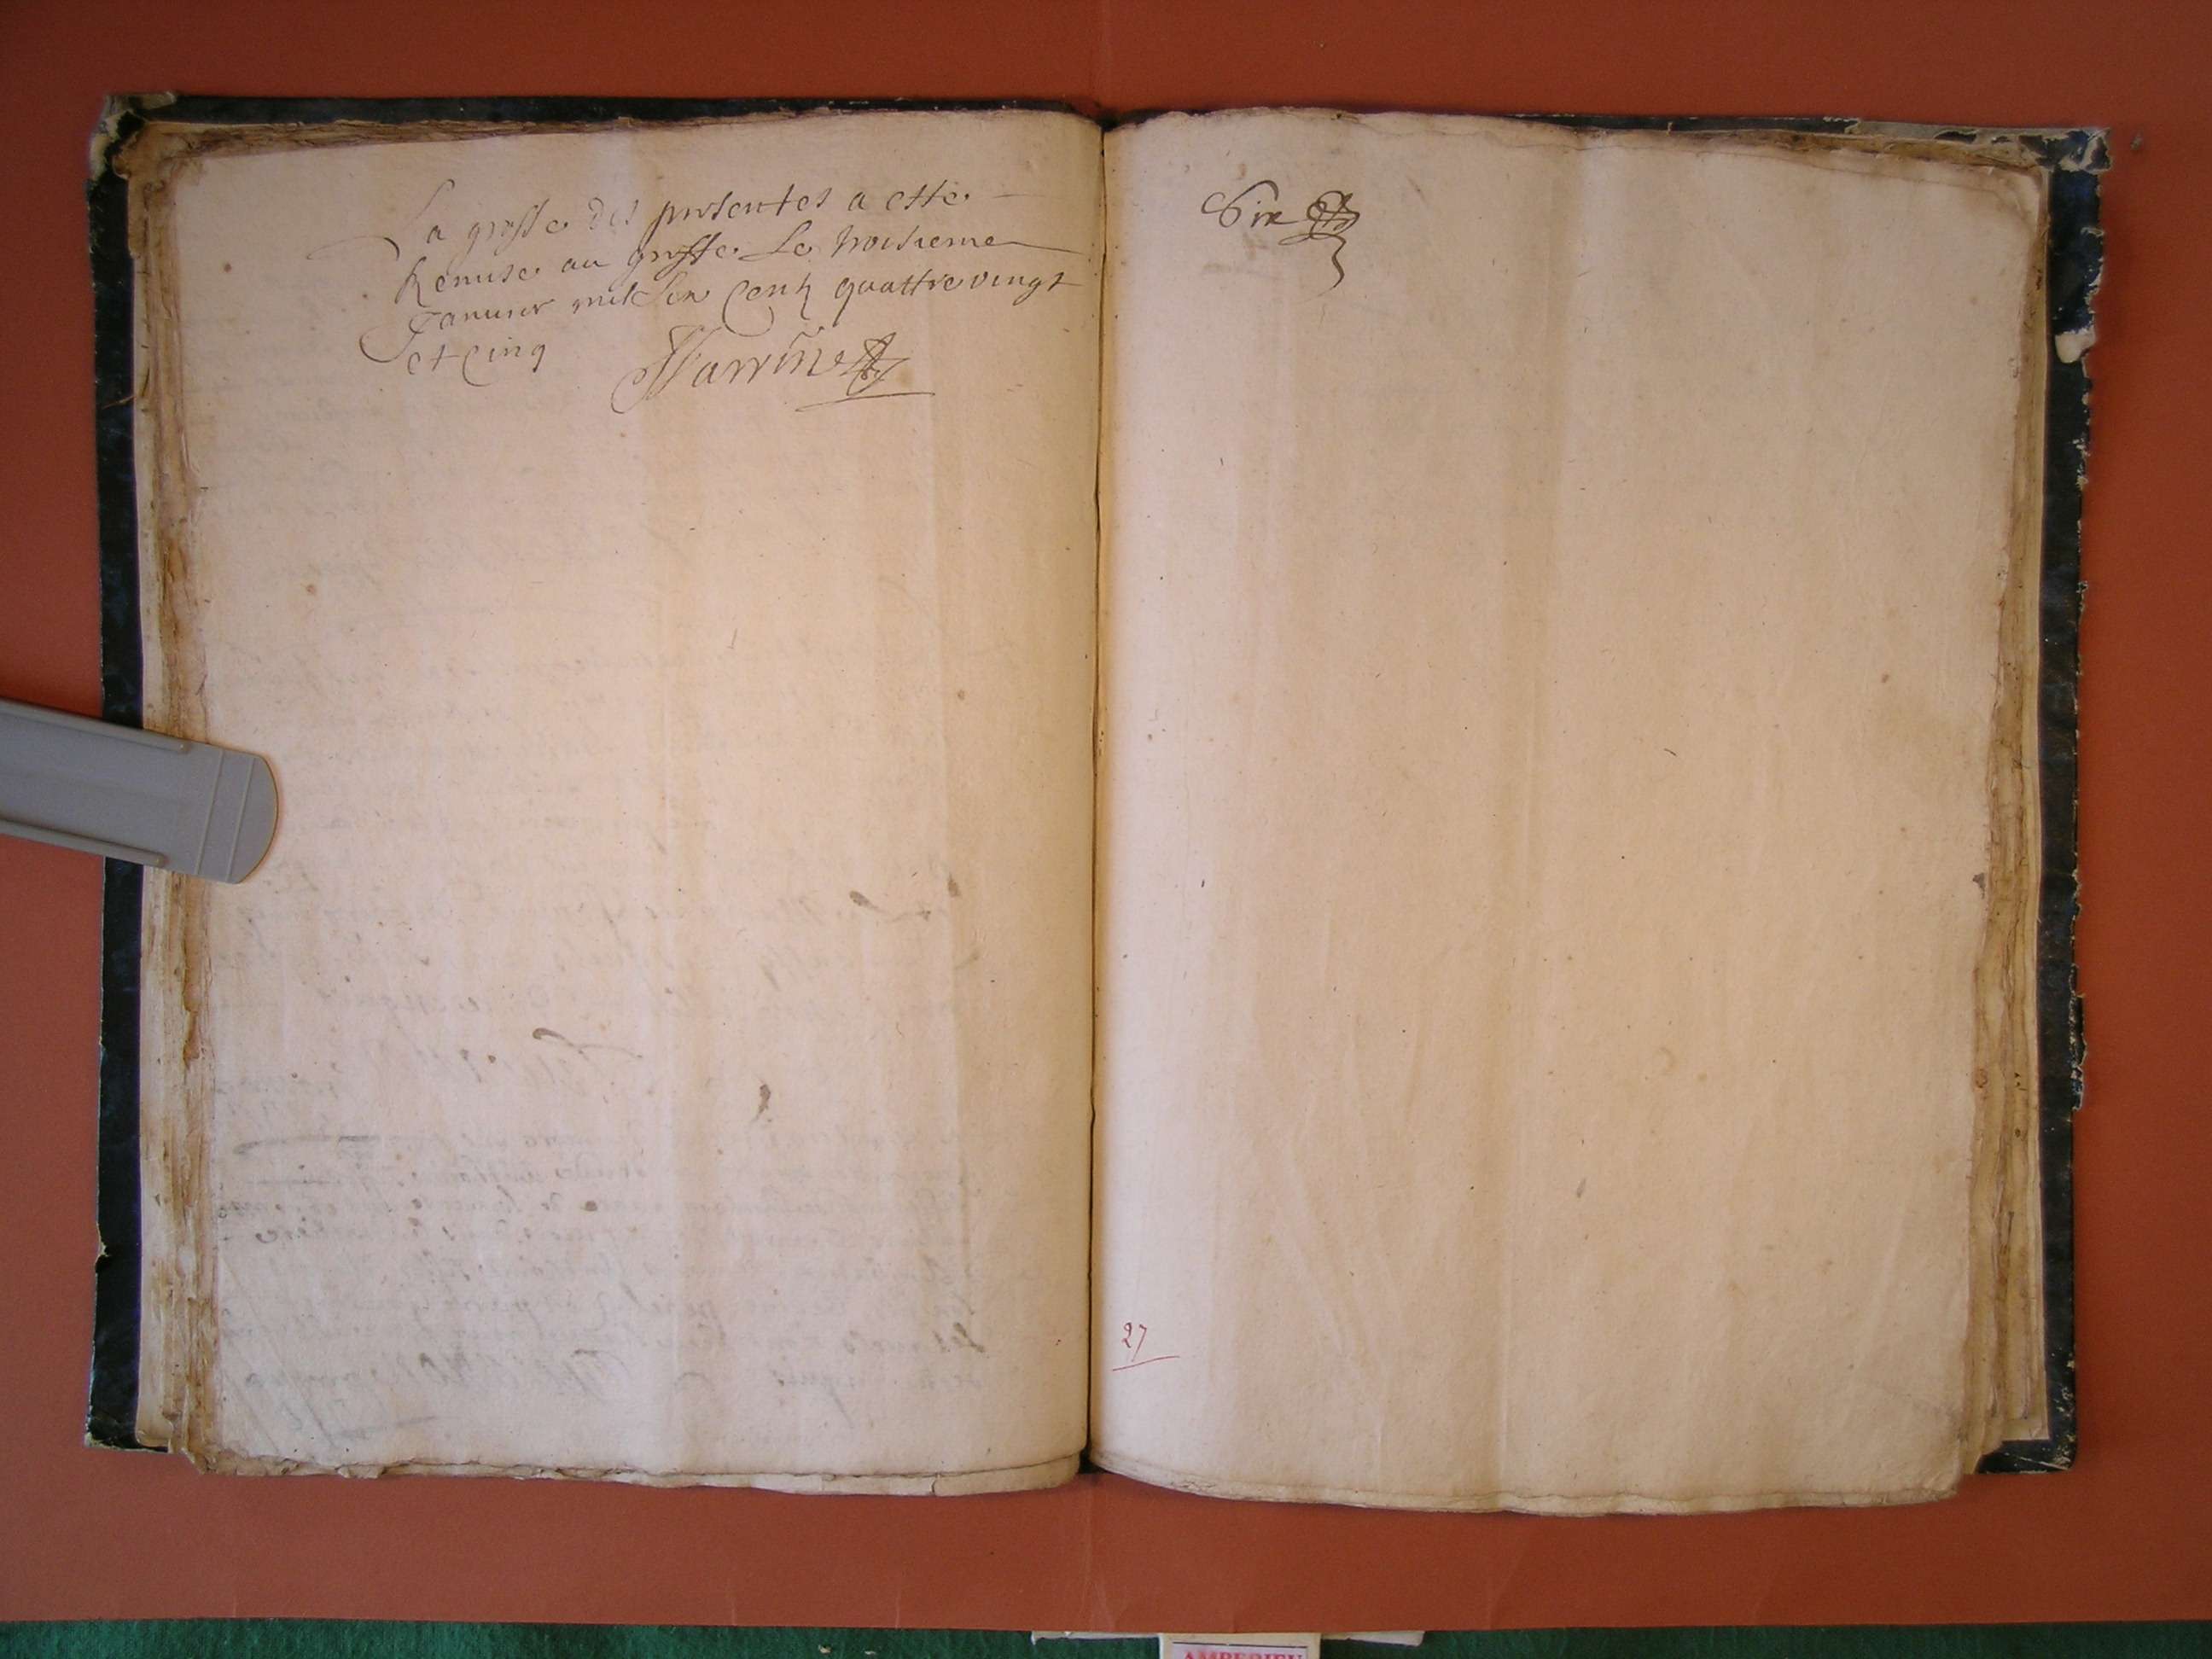 La grosse des presentes a esté
Remise au greffe Le troisieme
Januier mil Six Centz quattre vingt
et cinq
Six
27
AMBERIEU